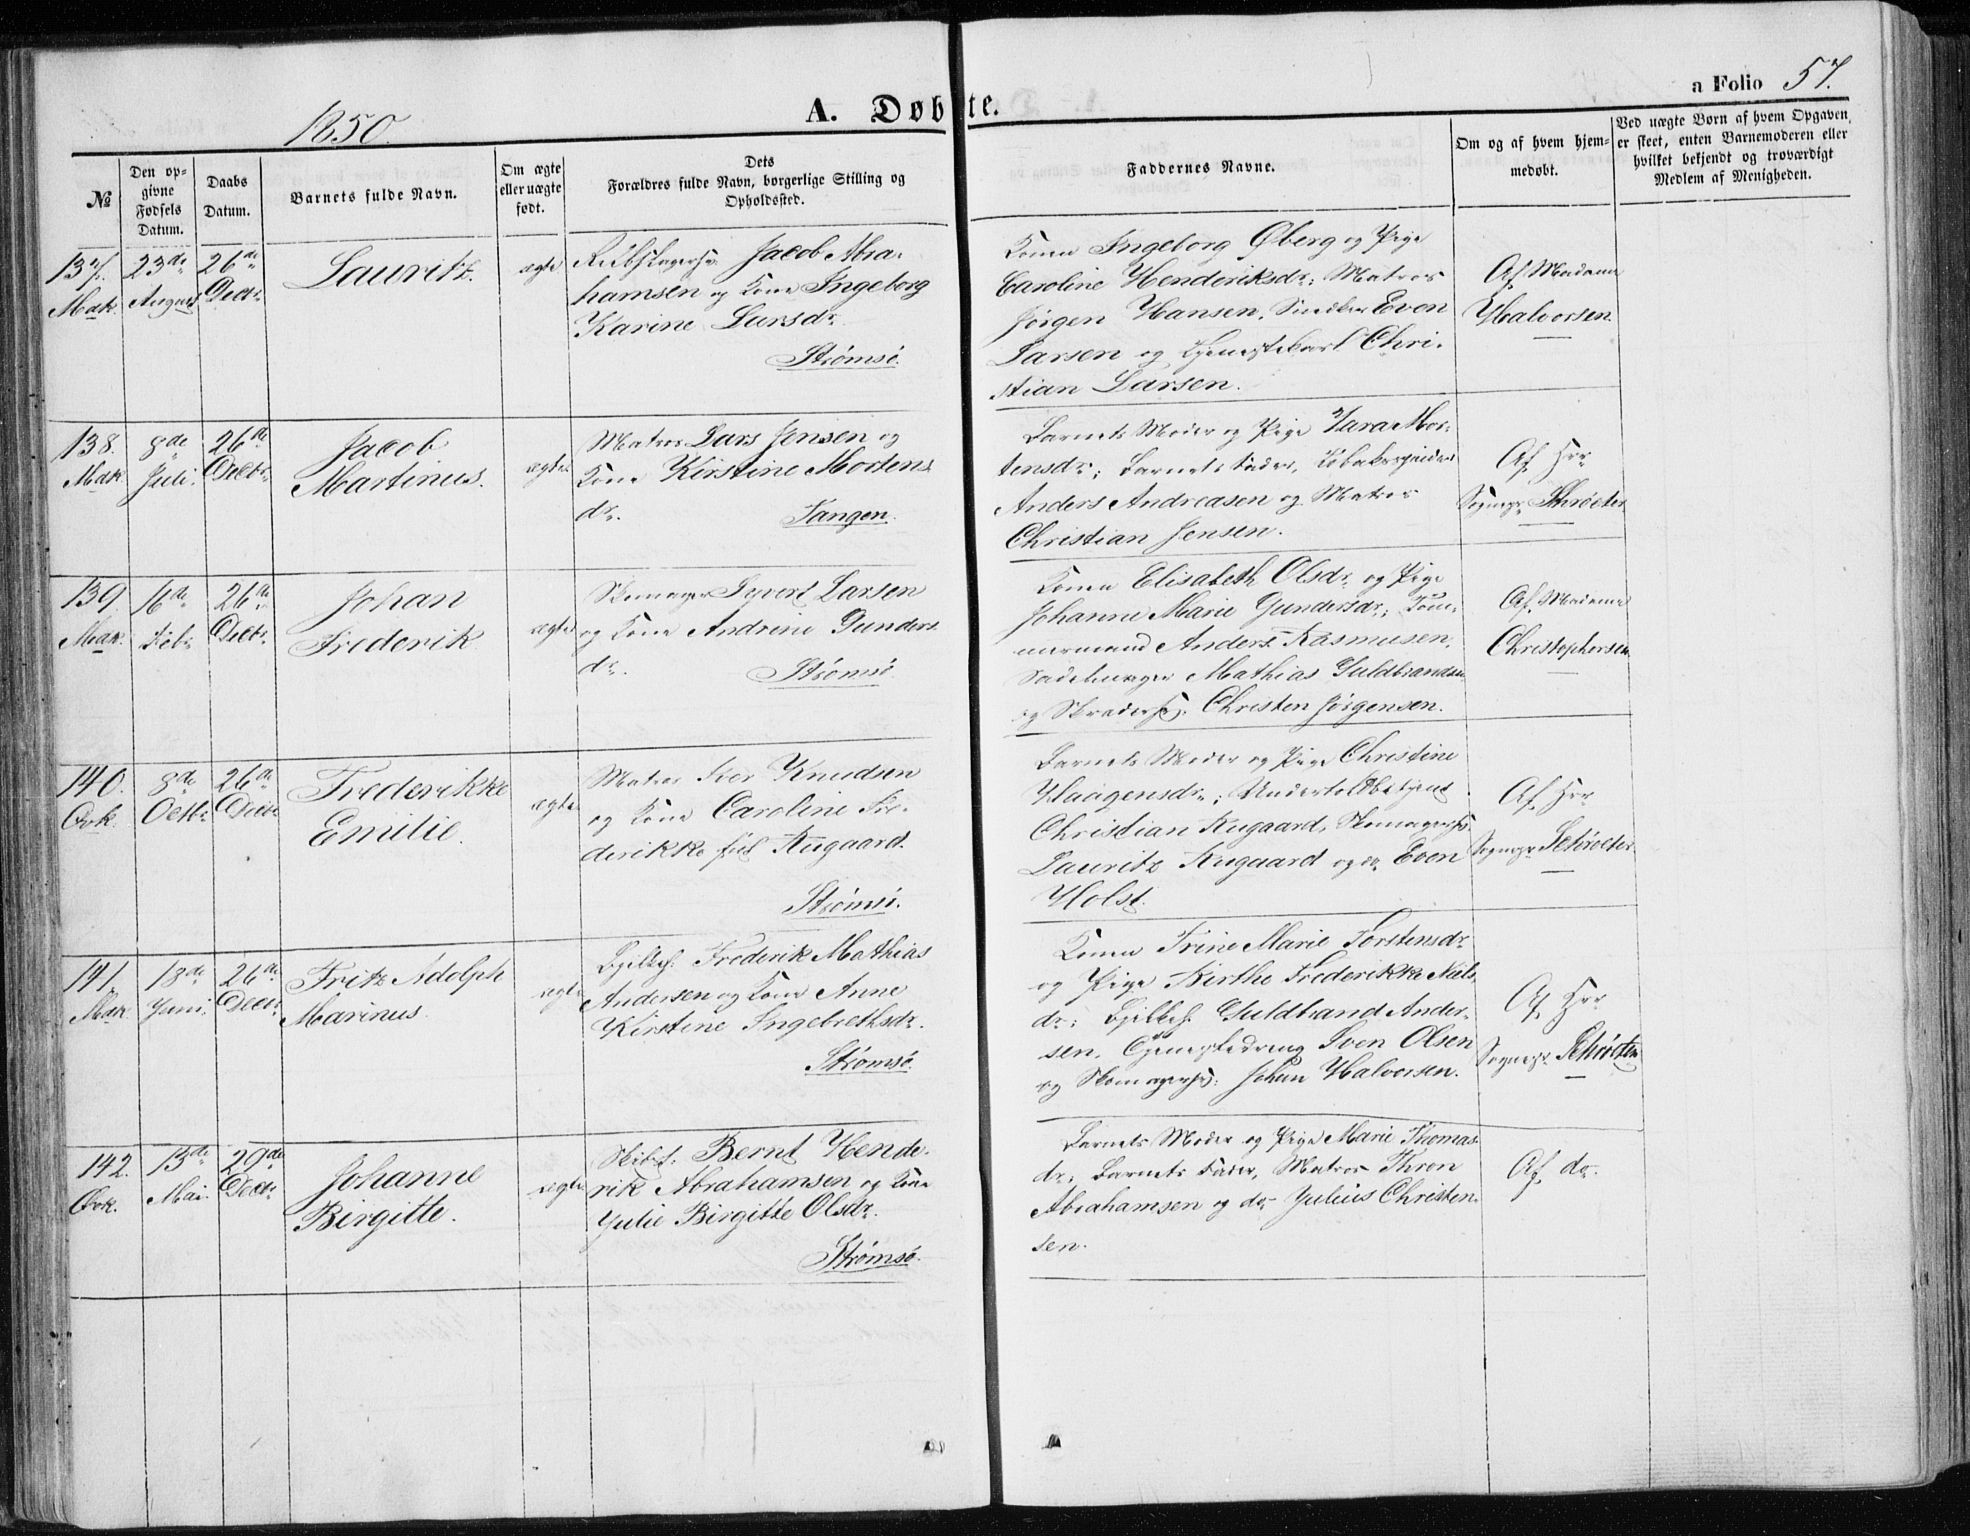 1850.
A. Døbte.
a Folio 57.
№
Den op-
givne
Fødsels
Datum.
Daabs
Datum.
Barnets fulde Navn.
Om ægte
eller uægte
født.
Dets
Forældres fulde Navn, borgerlige Stilling og
Opholdssted.
Faddernes Navne.
Om og af hvem hjem-
medøbt.
Ved uægte Børn af hvem Opgaven
er skeet, enten Barnemoderen eller
hvilket bekjendt og troværdigt
Medlem af Menigheden.
137.
Mdk.
23de
August
26de
Decbr.
Lauritz.
ægte
Jacob Abra-
hamsen og Kone Ingeborg
Karine Larsdr.
Strømsø.
Konen Ingeborg Øberg og Pige
Caroline Henderiksdr.; Matros
Jørgen Hansen, Snedker Even
Larsen og Tjenestekarl Chri-
stian Larsen.
Af Madame
Halvorsen.
138.
Mdk.
8de
Juli.
26de
Decbr.
Jacob
Martinus.
ægte
Matros Lars Jensen og
Kone Kirstine Mortens
dr. Tangen.
Barnets Moder og Pige Mor-
tensdr.; Barnets Fader,
Anders Andreasen og Matros
Christian Jensen.
Af Hrr
Sognepr. Schrøeter
139.
Mdk.
16de
Febr.
26de
Decbr.
Johan
Frederik
ægte
Skomager Syvert Larsen
og Kone Andrine Gunders
dr. Strømsø
Konen Elisabeth Olsdr. og Pige
Johanne Marie Gundersdr.; Tøm-
mermand Anders Rasmusen,
Sadelmager Mathias Guldbrandsen
og Christen Jørgensen.
Af Madame
Christophersen.
140.
Qvk.
8de
Octbr.
26de
Decbr.
Frederikke
Emilie.
ægte
Matros Iver Knudsen
og Kone Caroline Fre-
derikke født Krogaard.
Strømsø.
Barnets Moder og Pige Christine
Haagensdr.; Undertoldbetjent
Christian Krogaard, Skomagersv.
Lauritz Krogaard og do. Even
Holst.
Af Hrr
Sognepr. Schrøeter
141.
Mdk.
18de
Juni.
26de
Decbr.
Fritz Adolph
Marinus.
ægte
Frederik Mathias
Andersen og Kone Anne
Kirstine Ingebrethsdr.
Strømsø.
Konen Trine Marie Torstensdr.
og Pige Birthe Frederikke Niels-
dr.; Guldbrand Ander-
sen, Tjenestedreng Sven Olsen
og Skomagersv. Johan Halvorsen.
Af Hrr
Sognepr. Schrøeter
142.
Qvk.
13de
Mai.
29de
Decbr.
Johanne
Birgitte.
ægte
Skibst. Bernt Hende-
rik Abrahamsen og Kone
Julie Birgitte Olsdr.
Strømsø.
Barnets Moder og Pige Marie Thomas-
dr.; Barnets Fader, Matros Thron
Abrahamsen og do. Julius Christen-
sen.
Af do.